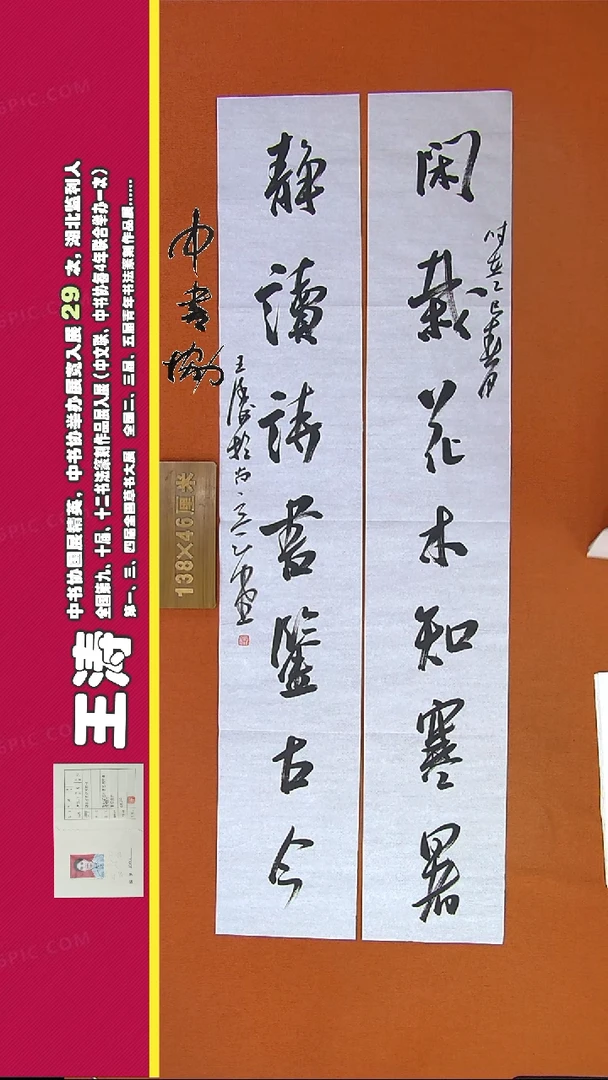 闲栽花木知寒暑
时在乙巳春月
静讀诗書鑒古今
王涛於
中書協
138×46厘米
王涛
中书协国展精英，中书协举办展览入展 29 次，湖北监利人
全国第九、十届、十二书法篆刻作品展入展（中文联、中书协各4年联合举办一次）
第一、三、四届全国草书大展 全国二、三届、五届青年书法篆刻作品展……